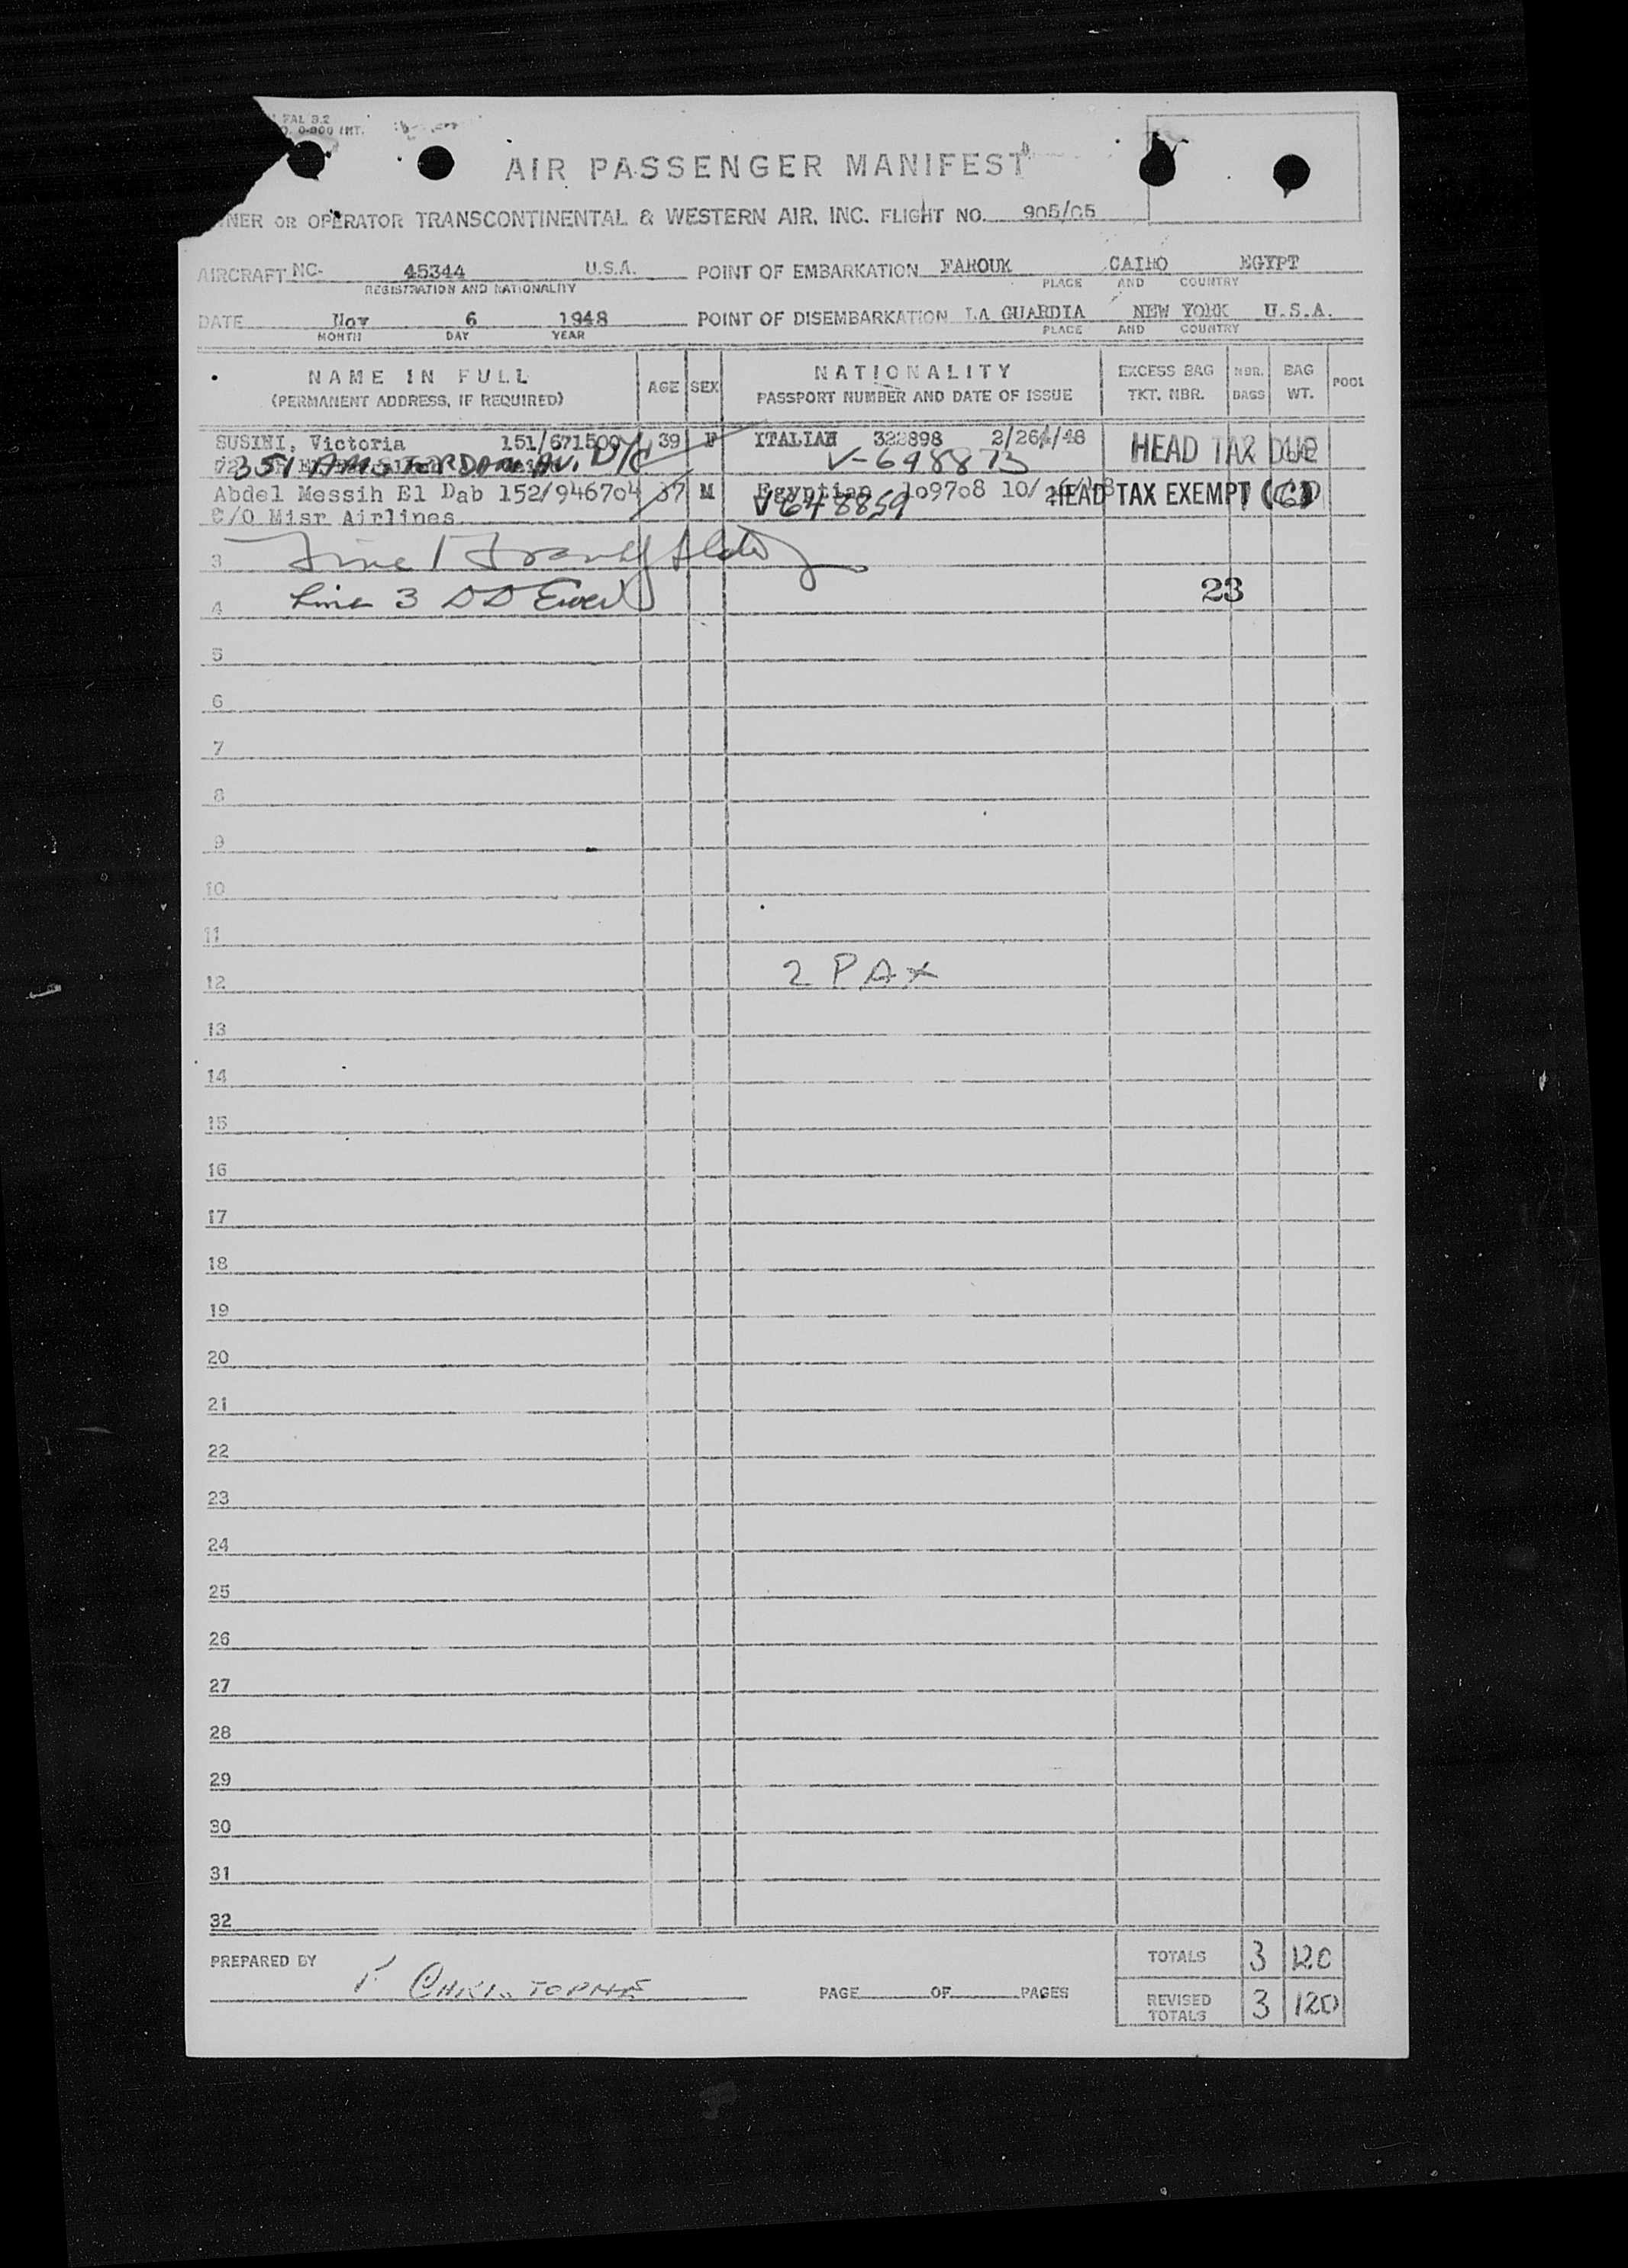 FAL 3.2
0-000 INT.
AIR PASSENGER MANIFEST
NER OR OPERATOR TRANSCONTINENTAL & WESTERN AIR, INC. FLIGHT NO. 905/05
AIRCRAFT NC- 45344 U.S.A. POINT OF EMBARKATION FAROUK CAIRO EGYPT
REGISTRATION AND NATIONALITY PLACE AND COUNTRY
DATE Nov 6 1948 POINT OF DISEMBARKATION LA GUARDIA NEW YORK U.S.A.
MONTH DAY YEAR PLACE AND COUNTRY
NAME IN FULL AGE SEX NATIONALITY EXCESS BAG NBR. BAG POOL
(PERMANENT ADDRESS, IF REQUIRED) PASSPORT NUMBER AND DATE OF ISSUE TKT. NBR. BAGS WT.
SUSINI, Victoria 151/671500 39 F ITALIAN 322898 2/26/48 HEAD TAX DUE
351 AMSTERDAM AV. N/C V-648873
Abdel Messih El Dab 152/946704 37 M Egyptian 109708 10/ HEAD TAX EXEMPT
C/O Misr Airlines V648859
3 Line 1
4 Line 3 DD 23
5
6
7
8
9
10
11
12 2 PAX
13
14
15
16
17
18
19
20
21
22
23
24
25
26
27
28
29
30
31
32
PREPARED BY CHRISTOPHE TOTALS 3 120
PAGE OF PAGES REVISED TOTALS 3 120